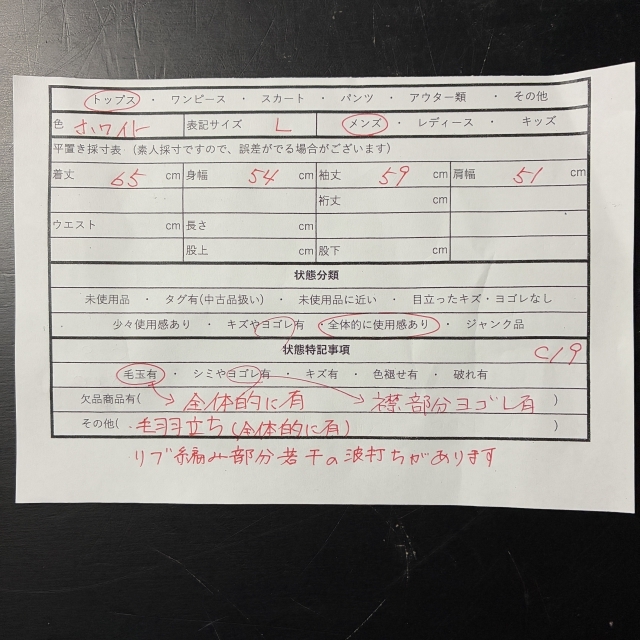 トップス ・ ワンピース ・ スカート ・ パンツ ・ アウター類 ・ その他
色 ホワイト 表記サイズ L メンズ ・ レディース ・ キッズ
平置き採寸表 (素人採寸ですので、誤差がでる場合がございます)
着丈 65 cm 身幅 54 cm 袖丈 59 cm 肩幅 51 cm
裄丈 cm
ウエスト cm 長さ cm
股上 cm 股下 cm
状態分類
未使用品 ・ タグ有(中古品扱い) ・ 未使用品に近い ・ 目立ったキズ・ヨゴレなし
少々使用感あり ・ キズやヨゴレ有 ・ 全体的に使用感あり ・ ジャンク品
状態特記事項 C19
毛玉有 ・ シミやヨゴレ有 ・ キズ有 ・ 色褪せ有 ・ 破れ有
欠品商品有( 全体的に有 襟部分ヨゴレ有 )
その他( 毛羽立ち(全体的に有) )
リブ編み部分若干の波打ちがあります